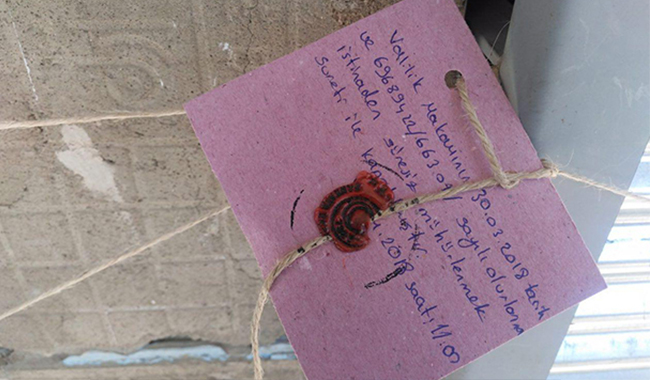 Valilik Makamının 30.03.2018 tarih
ve 69689422/663.09/ sayılı olurlarına
istinaden süresiz mühürlenmek
sureti ile
2018 saati 11.00